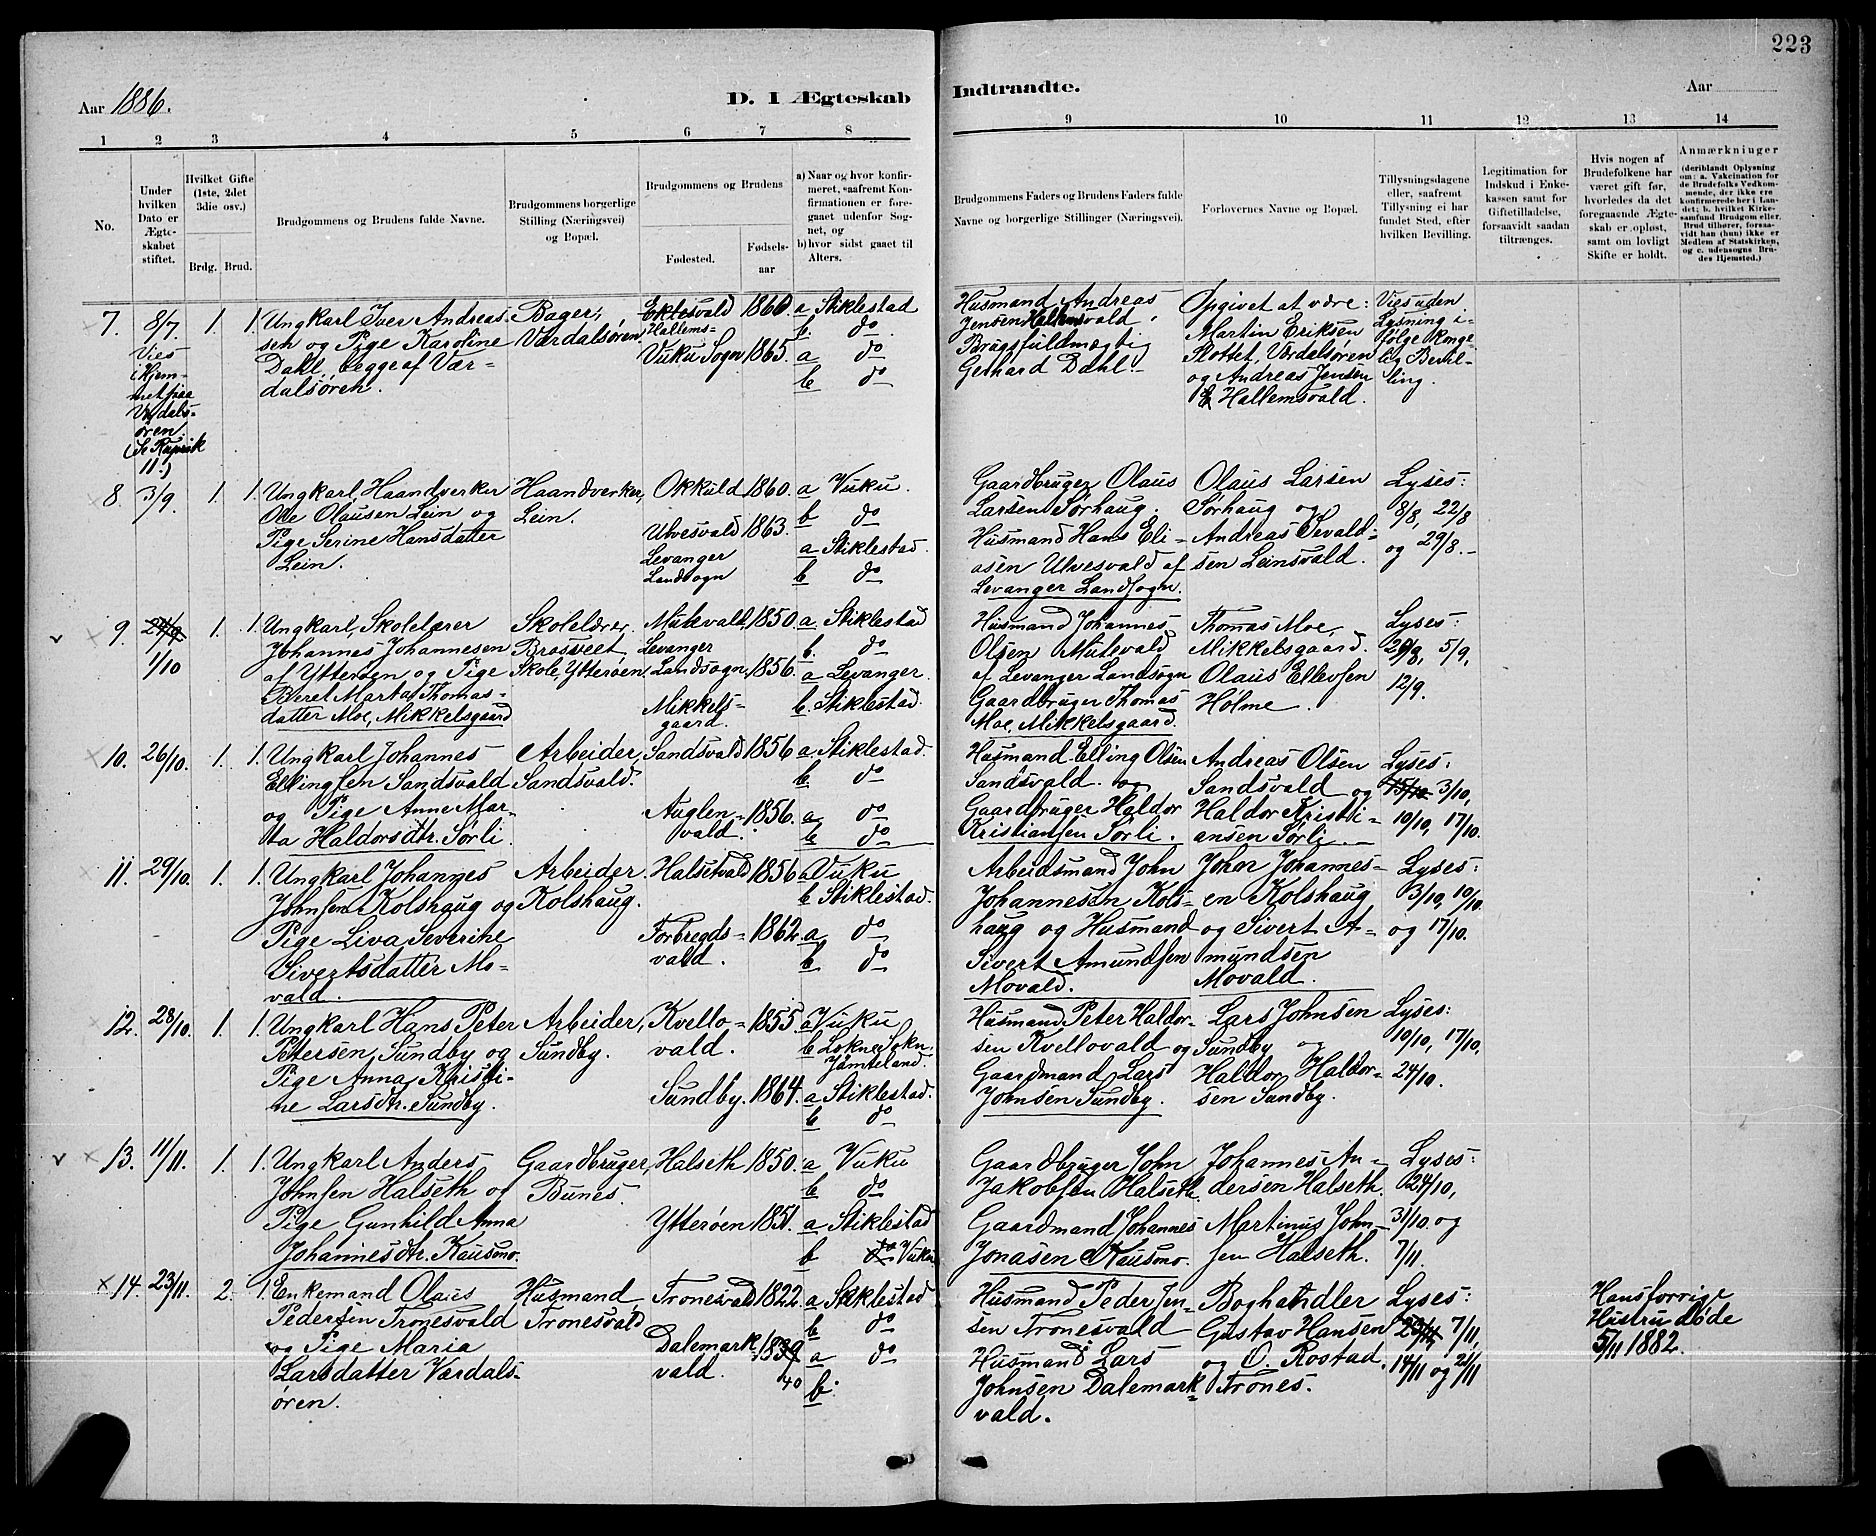 223
Aar 1886.
D. I Ægteskab
Indtraadte.
Aar
1 2 3 4 5 6 7 8 9 10 11 12 13 14
No.
Under hvilken Dato er Ægteskabet stiftet.
Hvilket Gifte (1ste, 2det 3die osv.)
Brdg. Brud.
Brudgommens og Brudens fulde Navne.
Brudgommens borgerlige Stilling (Næringsvei) og Bopæl.
Brudgommens og Brudens
Fødested.
Fødsels-aar
a) Naar og hvor konfirmeret, saafremt Konfirmationen er foregaaet udenfor Sognet, og
b) hvor sidst gaaet til Alters.
Brudgommens Faders og Brudens Faders fulde Navne og borgerlige Stillinger (Næringsvei).
Forlovernes Navne og Bopæl.
Tillysningsdagene eller, saafremt Tillysning ei har fundet Sted, efter hvilken Bevilling.
Legitimation for Indskud i Enkekassen samt for Giftetilladelse, forsaavidt saadan tiltrænges.
Hvis nogen af Brudefolkene har været gift før, hvorledes da det foregaaende Ægteskab er opløst, samt om lovligt Skifte er holdt.
Anmærkninger (deriblandt Oplysning om: a. Vakcination for de Brudefolks Vedkommende, der ikke ere konfirmerede her i Landet; b. hvilket Kirkesamfund Brudgom eller Brud tilhører, forsaavidt han (hun) ikke er Medlem af Statskirken, og c. udensogns Brudes Hjemsted.)
7. 8/7 Vies i Hjemmet paa Værdalsøren. (Se Rubrik 11.)
1. 1.
Ungkarl Iver Andreas-
sen og Pige Karoline
Dahl, begge af Vær-
dalsøren.
Bager,
Værdalsøren.
Eklesvald
Hallems-
Vuku Sogn
1860
1865.
a Stiklestad
b. do
a do
b do
Husmand Andreas
Jensen Hallemsvald
Brugsfuldmægtig
Gerhard Dahl.
Opgivet at være:
Martin Eriksen
Slottet, Værdalsøren
og Andreas Jensen
Hallemsvald.
Vies uden
Lysning i-
følge Konge-
lig Bevil-
ling.
8. 3/9. 1. 1.
Ungkarl, Haandverker
Ole Olausen Lein og
Pige Serine Hansdatter
Lein.
Haandverker,
Lein.
Okkuld
Ulvesvald
Levanger
Landsogn
1860.
1863.
a Vuku.
b do
a Stiklestad.
b do
Gaardbruger Olaus
Larsen Sørhaug.
Husmand Hans Eli-
asen Ulvesvald af
Levanger Landsogn.
Olaus Larsen
Sørhaug og
Andreas Sevald-
sen Leinsvald.
Lyses:
8/8, 22/8
og 29/8.
v 9. 1/10 1. 1.
Ungkarl, Skolelærer
Johannes Johannesen
af Ytterøen og Pige
Beret Marta Thomas-
datter Moe, Mikkelsgaard
Skolelærer.
Brasveet
Skole, Ytterøen
Mulevald,
Levanger
Landsogn,
Mikkels-
gaard.
1850.
1856.
a Stiklestad
b. do
a Levanger.
b. Stiklestad.
Husmand Johannes
Olsen Mulevald
af Levanger Landsogn
Gaardbruger Thomas
Moe, Mikkelsgaard.
Thomas Moe,
Mikkelsgaard.
Olaus Ellevsen
Holme.
Lyses:
29/8, 5/9,
12/9.
10. 26/10. 1. 1.
Ungkarl Johannes
Ellingsen Sandsvald
og Pige Anne Mar-
ta Haldorsdtr. Sørli.
Arbeider,
Sandsvald.
Sandsvald
Auglen-
vald.
1856
1856.
a Stiklestad.
b do
a do
b do
Husmand Elling Olsen
Sandsvald. og
Gaardbruger Haldor
Kristiansen Sørli.
Andreas Olsen
Sandsvald og
Haldor Kristi-
ansen Sørli.
Lyses:
3/10,
10/10, 17/10.
11. 29/10. 1. 1.
Ungkarl Johannes
Johnsen Kolshaug og
Pige Liva Severine
Sivertsdatter Mo-
vald.
Arbeider.
Kolshaug.
Halsetvald
Forbregds-
vald.
1856
1862.
a Vuku
b Stiklestad.
a do
b do
Arbeidsmand John
Johannesen Kols-
haug og Husmand
Sivert Amundsen
Movald.
Johan Johannes-
en Kolshaug
og Sivert A-
mundsen
Movald.
Lyses:
3/10, 10/10.
og 17/10.
12. 28/10. 1. 1.
Ungkarl Hans Peter
Pettersen, Sundby og
Pige Anna Kristi-
ne Larsdtr. Sundby.
Arbeider,
Sundby.
Kvello-
vald.
Sundby.
1855.
1864.
a Vuku
b Lokne Sokn,
Jämteland.
a Stiklestad.
b do
Husmand Peter Haldor-
sen Kvellovald og
Gaardmand Lars
Johnsen Sundby.
Lars Johnsen
Sundby og
Haldor Haldor-
sen Sundby.
Lyses:
10/10, 17/10,
24/10.
v 13. 11/11. 1. 1.
Ungkarl Anders
Johnsen Halseth og
Pige Gunhild Anna
Johannesdtr. Kausmo.
Gaardbruger,
Bunes.
Halseth
Ytterøen
1850.
1851.
a Vuku
b do
a Stiklestad
b do Vuku
Gaardbruger John
Jakobsen Halseth.
Gaardmand Johannes
Jonasen Kausmo.
Johannes An-
dersen Halseth.
Martinus John-
sen Halseth.
Lyses:
24/10,
31/10 og
7/11.
14. 23/11. 2. 1.
Enkemand Olaus
Pedersen Tronesvald
og Pige Maria
Larsdatter Værdals-
øren.
Husmand
Tronesvald
Tronesvald
Dalemark-
vald.
1822.
1839
40
a Stiklestad
b do
a do
b.
Husmand Peder Jen-
sen Tronesvald
Husmand Lars
Johnsen Dalemark-
vald.
Boghandler
Gustav Hansen
og O. Rostad,
Trones.
Lyses:
7/11,
14/11 og 21/11
Hans forrige
Hustru døde
5/11 1882.